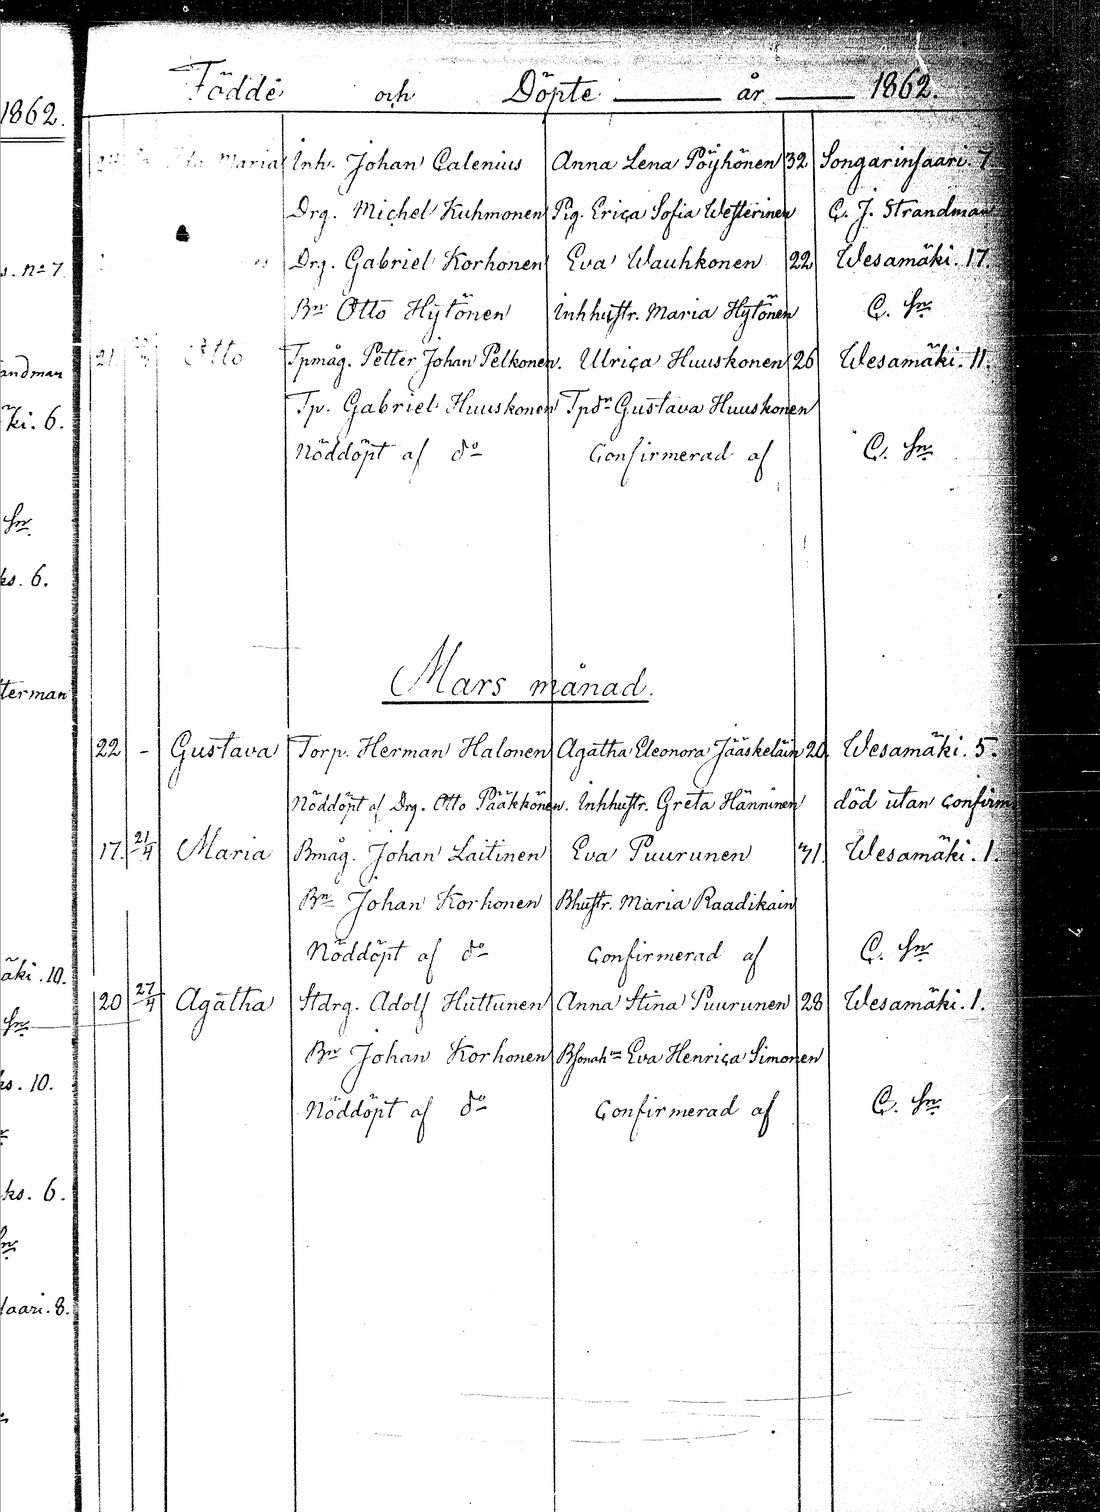 1862.
Födde och Döpte år 1862.
Maria Inh. Johan Calenius Anna Lena Pöyhönen 32 Songarinsaari. 7
Drg. Michel Kuhmonen Pig. Erica Sofia Westerinen C. J. Strandman
s. no 7. Drg. Gabriel Korhonen Eva Wauhkonen 22 Wesamäki. 17.
Bn Otto Hytönen Inhhustr. Maria Hytönen C. Sn
andman 21 Otto Tpmåg. Petter Johan Pelkonen. Ulrica Huuskonen 26 Wesamäki. 11.
ki. 6. Tp. Gabriel Huuskonen Tpdr Gustava Huuskonen
Nöddöpt af do Confirmerad af C. Sn
Sn
ks. 6.
Mars månad.
terman
22 - Gustava Torp. Herman Halonen Agatha Eleonora Jääskeläin 20. Wesamäki. 5.
Nöddöpt af Drg. Otto Pääkkönen. Inhhustr. Greta Hänninen död utan confirm
17. 21/4 Maria Bmåg. Johan Laitinen Eva Puurunen 31. Wesamäki. 1.
Bn Johan Korhonen Bhustr. Maria Raadikain
äki. 10. Nöddöpt af do Confirmerad af C. Sn
Sn 20 27/4 Agatha Stdrg. Adolf Huttunen Anna Stina Puurunen 28 Wesamäki. 1.
ks. 10. Bn Johan Korhonen Eva Henrica Simonen
Nöddöpt af do Confirmerad af C. Sn
ks. 6.
Sn
saari. 8.